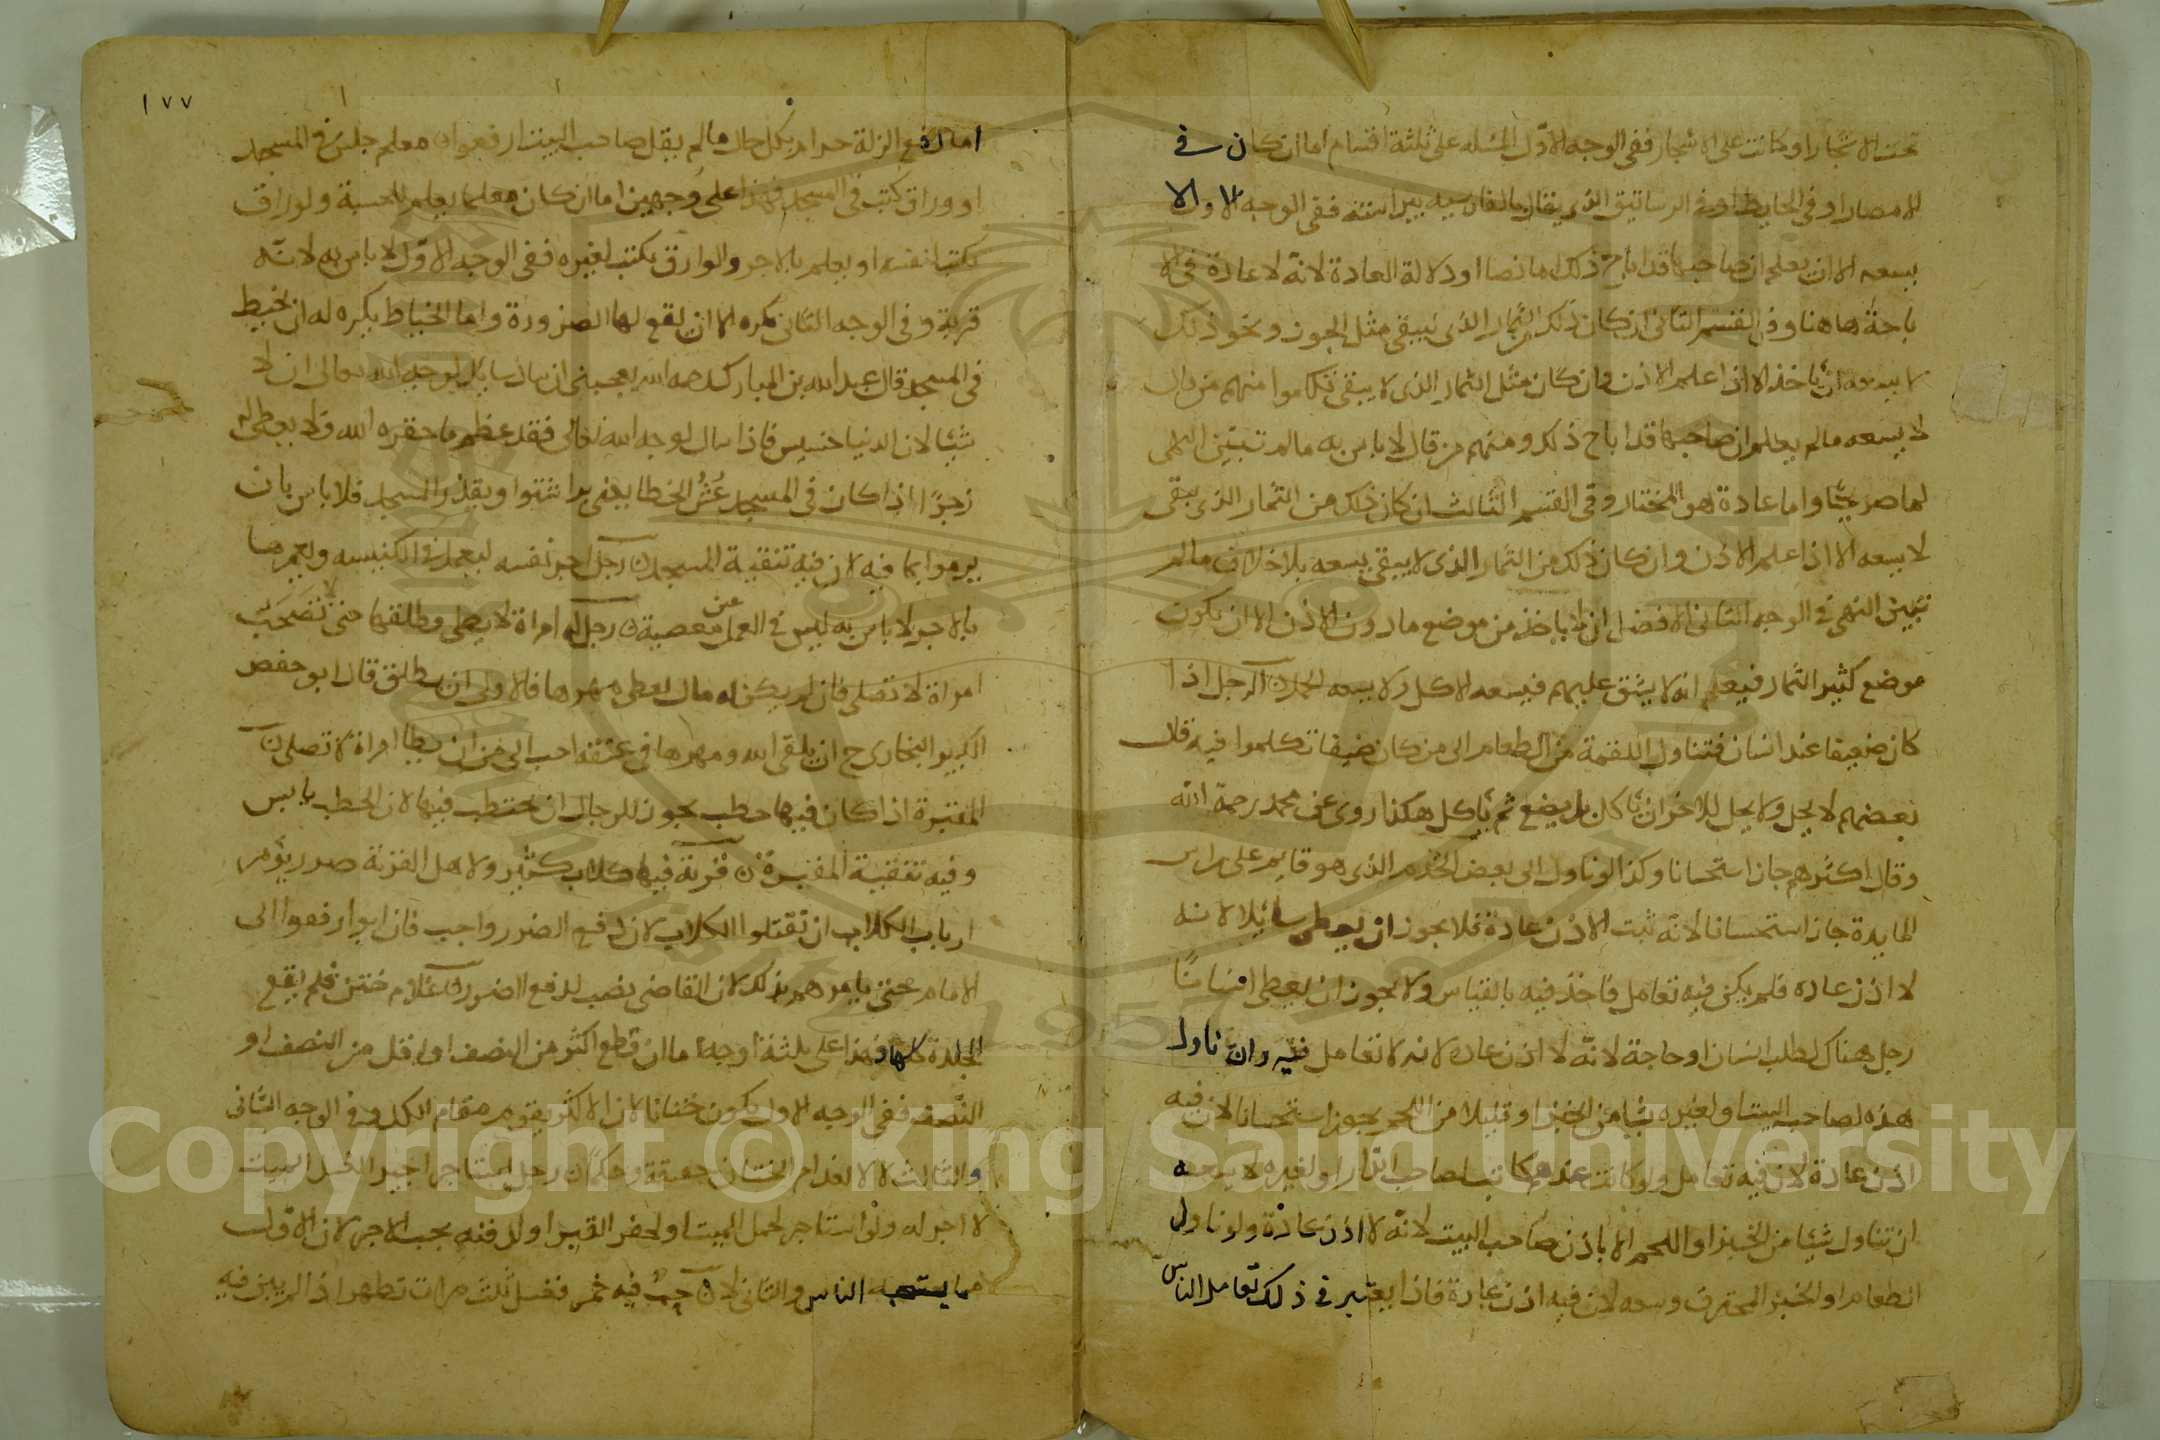 تحت الاشجار او كانت على الاشجار ففي الوجه الاول المسئلة على ثلثة اقسام اما ان كان في
الامصار او في الحايط او في الرساتيق الذي يقال بالفارسية ففي الوجه الاول لا
يسعه الا ان يعلم ان صاحبها قد اباح ذلك اما نصا او دلالة العادة لانه لا عادة في الا
باحة هاهنا وفي القسم الثاني ان كان ذلك من الثمار الذي يبقى مثل الجوز ونحو ذلك
لا يسعه ان ياخذ الا اذا علم الاذن وان كان مثل الثمار الذي لا يبقى تكلموا منهم من قال
لا يسعه ما لم يعلم ان صاحبها قد اباح ذلك ومنهم من قال لا باس به ما لم تتبين النهى
اما صريحا واما عادة هو المختار وفي القسم الثالث ان كان ذلك من الثمار الذي يبقى
لا يسعه الا اذا علم الاذن وان كان ذلك من الثمار الذي لا يبقى يسعه بلا خلاف ما لم
تتبين النهى في الوجه الثاني الافضل ان لا ياخذ من موضع ما دون الاذن الا ان يكون
موضع كثير الثمار فيعلم انه لا يشق عليهم فيسعه الاكل ولا يسعه الحمل رجل اذا
كان ضيفا عند انسان فتناول اللقمة من الطعام الى من كان ضيفا تكلموا فيه قال
بعضهم لا يحل ولا يحل للاخر ان ياكل بل يضع ثم ياكل هكذا روى عن محمد رحمه الله
وقال اكثرهم جاز استحسانا وكذا لو ناول الى بعض الخدم الذي هو قايم على راس
المايدة جاز استحسانا لانه ثبت الاذن عادة فلا يجوز ان يعطى سايلا لانه
لا اذن عادة فلم يكن فيه تعامل فاخذ فيه بالقياس ولا يجوز ان يعطى انسانا
رجل هناك لطلب انسان او حاجة لانه لا اذن عادة لانه لا تعامل فيه وان ناول
هذه لصاحب البيت او لغيره شيا من الخبز او قليلا من اللحم يجوز استحسانا لان فيه
اذن عادة لان فيه تعامل ولو كانت عندهم كانت لصاحب الدار او لغيره لا يسعه
ان تناول شيئا من الخبز او اللحم الا باذن صاحب البيت لانه لا اذن عادة ولو ناول
الطعام او الخبز المحترق وسعه لان فيه اذن عادة فاذا يعتبر في ذلك تعامل الناس
١٧٧
اما رفع الزلة حرام بكل حال ما لم يقل صاحب البيت ارفعوا معلم جلس في المسجد
او وراق كتب في المسجد فهذا على وجهين اما ان كان معلما يعلم للحسبة ولوراق
يكتب لنفسه او يعلم بالاجر والوارق يكتب لغيره ففي الوجه الاول لا باس به لانه
قربة وفي الوجه الثاني يكره الا ان يقع لها الضرورة واما الخياط يكره له ان يخيط
في المسجد قال عبد الله بن المبارك رحمه الله يعجبني ان سال سايل لوجه الله تعالى ان لا
شيئا لان الدنيا خسيس فاذا سال لوجه الله تعالى فقد عظم ما حقره الله ولا يعطى له
زجرا اذا كان في المسجد عش الخطا يعني ويقذر المسجد فلا باس بان
يرموا بما فيه لان فيه تنقية المسجد رجل اجر نفسه ليعمل في الكنيسة ويعمرها
بالاجر لا باس به ليس في العمل عن معصية رجل له امراة لا يصلى وطلقها حتى لا تصحب
امراة لا تصلى فان لم يكن له مال يعطى مهرها فالاولى ان يطلق قال ابو حفص
الكبير البخاري ح ان يلقى الله ومهرها في عنقه احب الى من ان يطا امراة لا تصلى
المقبرة اذا كان فيها حطب يجوز للرجال ان يحتطب فيها لان الحطب يابس
وفيه تنقية المقبرة قرية فيها كلاب كثير ولاهل القرية ضرر يؤمر
ارباب الكلاب ان تقتلوا الكلاب لان دفع الضرر واجب فان ابوا رفعوا الى
الامام حتى يامرهم بذلك لان القاضى نصب لدفع الضرر غلام ختن فلم يقع
الجلدة كلها فهذا على ثلثة اوجه اما ان قطع اكثر من النصف او اقل من النصف او
النصف ففي الوجه الاول يكون ختانا لان الاكثر يقوم مقام الكل وفي الوجه الثاني
والثالث لا لانعدام الختان حقيقة وحكما رجل استاجر اجيرا لغسل الميت
لا اجر له ولو استاجر لحمل الميت او لحفر القبر او لدفنه يجب الاجر لان الاول
مما يستحبه الناس والثاني لا حب فيه خمر فغسل ثلث مرات تطهر اذا لم يبق فيه
Copyright © King Saud University
1957